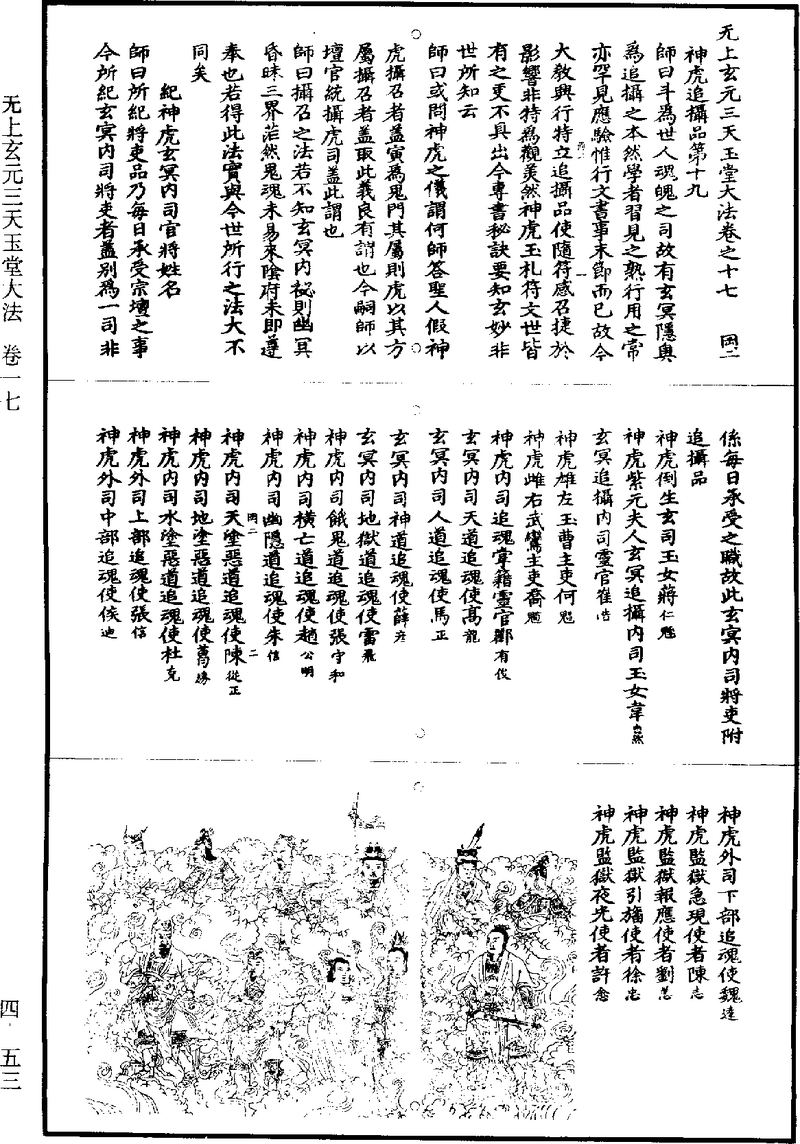 无上玄元三天玉堂大法卷之十七　罔二
神虎追攝品第十九
師曰斗為世人魂魄之司故有玄冥隱奧
為追攝之本然學者習見之熟行用之常
亦罕見應驗惟行文書事末節而已故今
大教興行特立追攝品使隨符感召捷於
影響非特為觀美然神虎玉札符文世皆
有之更不具出今專書秘訣要知玄妙非
世所知云
師曰或問神虎之儀謂何師答聖人假神
虎攝召者蓋寅為鬼門其屬則虎以其方
屬攝召者蓋取此義良有謂也今嗣師以
壇官統攝虎司蓋此謂也
師曰攝召之法若不知玄冥內祕則幽冥
昏昧三界茫然鬼魂未易來陰府未即遵
奉也若得此法實與今世所行之法大不
同矣
紀神虎玄冥內司官將姓名
師曰所紀將吏品乃每日承受宗壇之事
今所紀玄冥內司將吏者蓋別為一司非
係每日承受之職故此玄冥內司將吏附
追攝品
神虎倒生玄司玉女蔣仁
神虎紫元夫人玄冥追攝內司玉女韋
玄冥追攝內司靈官崔浩
神虎雄左玉曹主吏何
神虎雌右武鸞主吏喬
神虎內司追魂宰籍靈官鄺有俊
玄冥內司天道追魂使高龍
玄冥內司人道追魂使馬正
玄冥內司神道追魂使薛彥
玄冥內司地獄道追魂使雷飛
神虎內司餓鬼道追魂使張守和
神虎內司橫亡道追魂使趙公明
神虎內司幽隱道追魂使朱信
神虎內司天塗惡道追魂使陳從正
神虎內司地塗惡道追魂使萬勝
神虎內司水塗惡道追魂使杜克
神虎外司上部追魂使張信
神虎外司中部追魂使侯迪
神虎外司下部追魂使魏達
神虎監獄急現使者陳志
神虎監獄報應使者劉
神虎監獄引旛使者徐忠
神虎監獄夜光使者許
无上玄元三天玉堂大法　卷一七
四·五三